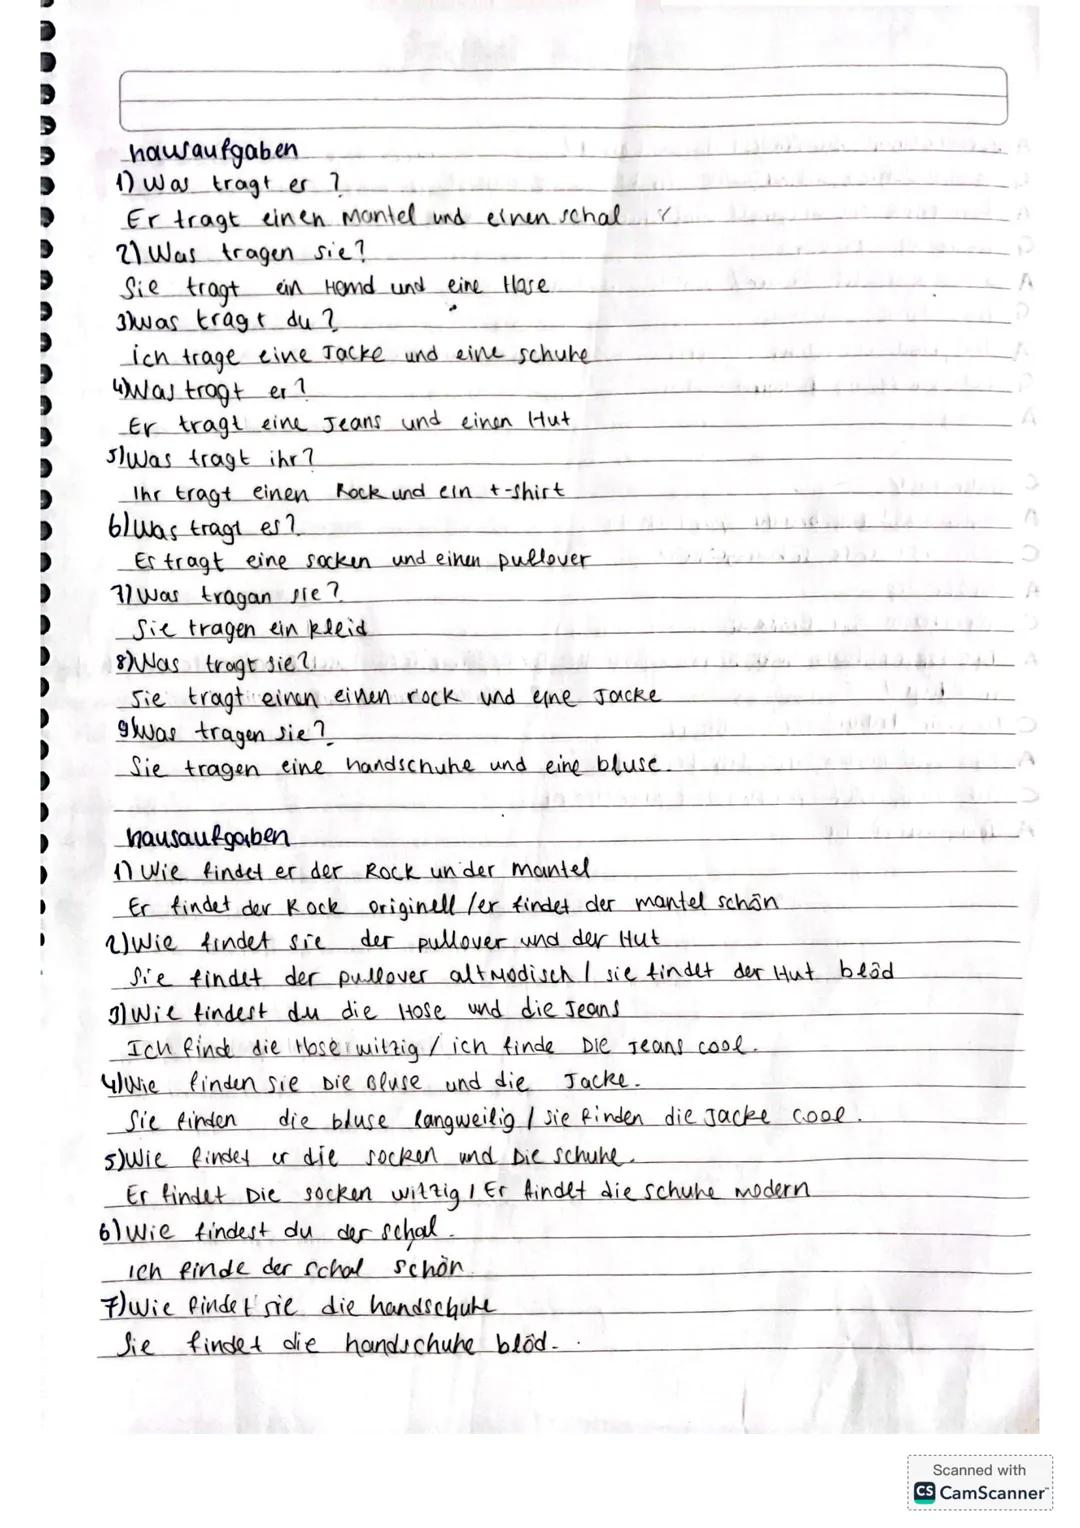 hausaufgaben
1) Was tragt er ?
Er tragt einen Mantel und einen schal
2) Was tragen sie?
Sie tragt ein Hemd und eine Hose
3) Was tragt du ?
ich trage eine Jacke und eine schuhe
4) Was tragt er ?
Er tragt eine Jeans und einen Hut
5) Was tragt ihr ?
Ihr tragt einen Rock und ein t-shirt
6) Was tragt es ?
Es tragt eine socken und einen pullover
7) Was tragan sie ?
Sie tragen ein kleid
8) Was tragt sie ?
Sie tragt einen einen rock und eine Jacke
9) Was tragen sie ?
Sie tragen eine handschuhe und eine bluse.
hausaufgaben
1) Wie findet er der Rock un der mantel
Er findet der Rock originell / er findet der mantel schön
2) Wie findet sie der pullover und der Hut
Sie findet der pullover altmodisch / sie findet der Hut blöd
3) Wie findest du die Hose und die Jeans
Ich finde die Hose witzig / ich finde Die Jeans cool.
4) Wie finden sie Die Bluse und die Jacke.
Sie finden die bluse langweilig / sie finden die Jacke cool.
5) Wie findet er die socken und Die schuhe.
Er findet Die socken witzig / Er findet die schuhe modern
6) Wie findest du der schal.
ich finde der schal schön.
7) Wie findet sie die handschuhe
Sie findet die handschuhe blöd.
Scanned with
CS CamScanner